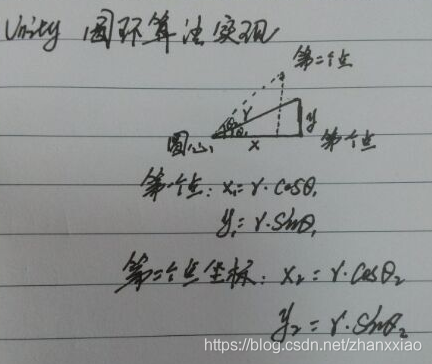 Unity 圆环算法实现
第二个点
r
θ₂
θ₁
y
圆心
x
第一个点
第一个点: x₁=r·cosθ₁
y₁=r·sinθ₁
第二个点坐标: x₂=r·cosθ₂
y₂=r·sinθ₂
https://blog.csdn.net/zhanxxiao